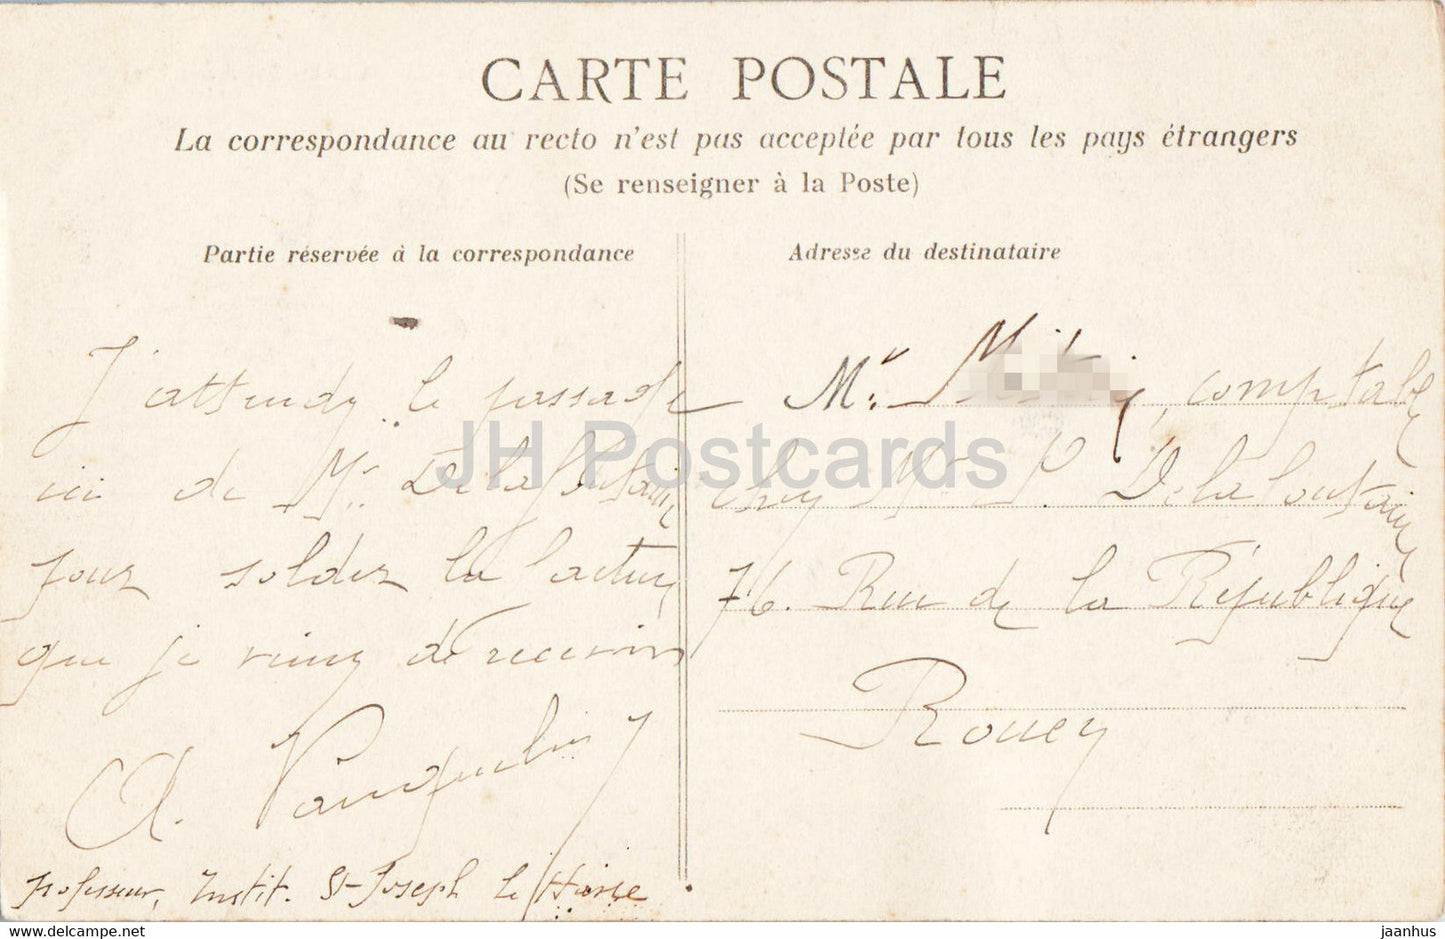 CARTE POSTALE
La correspondance au recto n'est pas acceptée par tous les pays étrangers
(Se renseigner à la Poste)
Partie réservée à la correspondance
J'attends le passage
ici de Mr. Delafontaine
pour solder la facture
que je viens de recevoir
A. Vauquelin
professeur, Instit. St-Joseph Le Havre
Adresse du destinataire
Mr. comptable
chez Mr P. Delafontaine
76. Rue de la République
Rouen
JH Postcards
www.delcampe.net
jaanhus